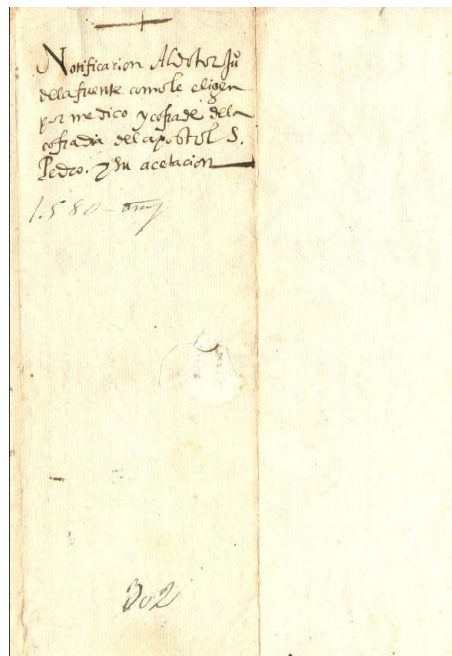 Notificacion Al dotor Ju
dela fuente como le eligen
por medico y cofrade dela
cofradia del apostol S.
Pedro. y su acetacion
1.580 - años
302